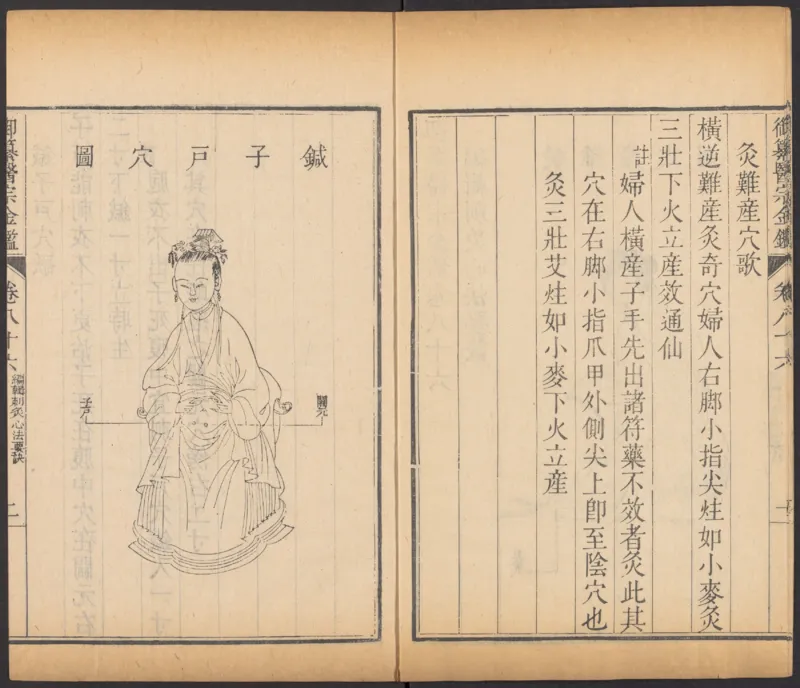 御纂醫宗金鑑
卷八十六
灸難産穴歌
橫逆難産灸奇穴婦人右脚小指尖炷如小麥灸
三壯下火立産效通仙
註婦人橫産子手先出諸符藥不效者灸此其
穴在右脚小指爪甲外側尖上卽至陰穴也
灸三壯艾炷如小麥下火立産
鍼子戸穴圖
關元
子戸
御纂醫宗金鑑
卷八十六
編輯刺灸心法要訣